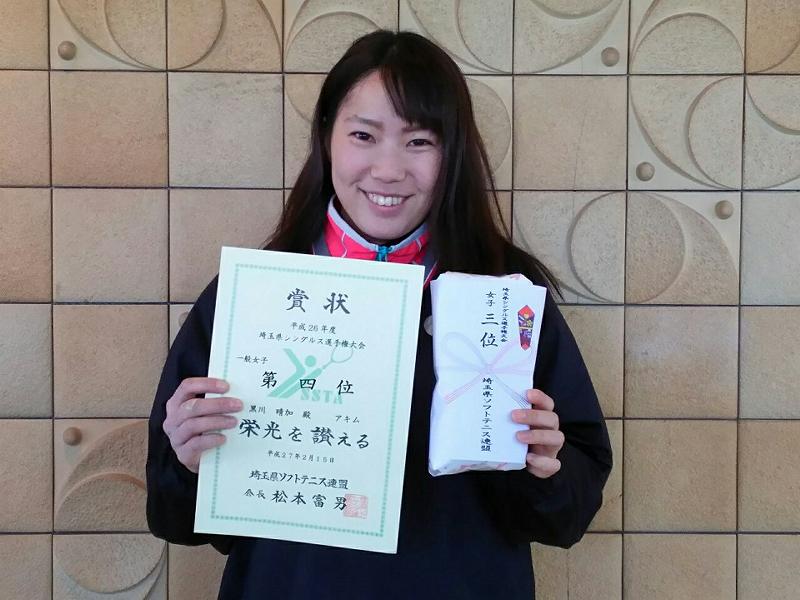 賞状
平成26年度
埼玉県シングルス選手権大会
一般女子
第四位
SSTA
黒川 晴加 殿 アキム
栄光を讃える
平成27年2月15日
埼玉県ソフトテニス連盟
会長 松本富男
埼玉県シングルス選手権大会
女子 三位
埼玉県ソフトテニス連盟